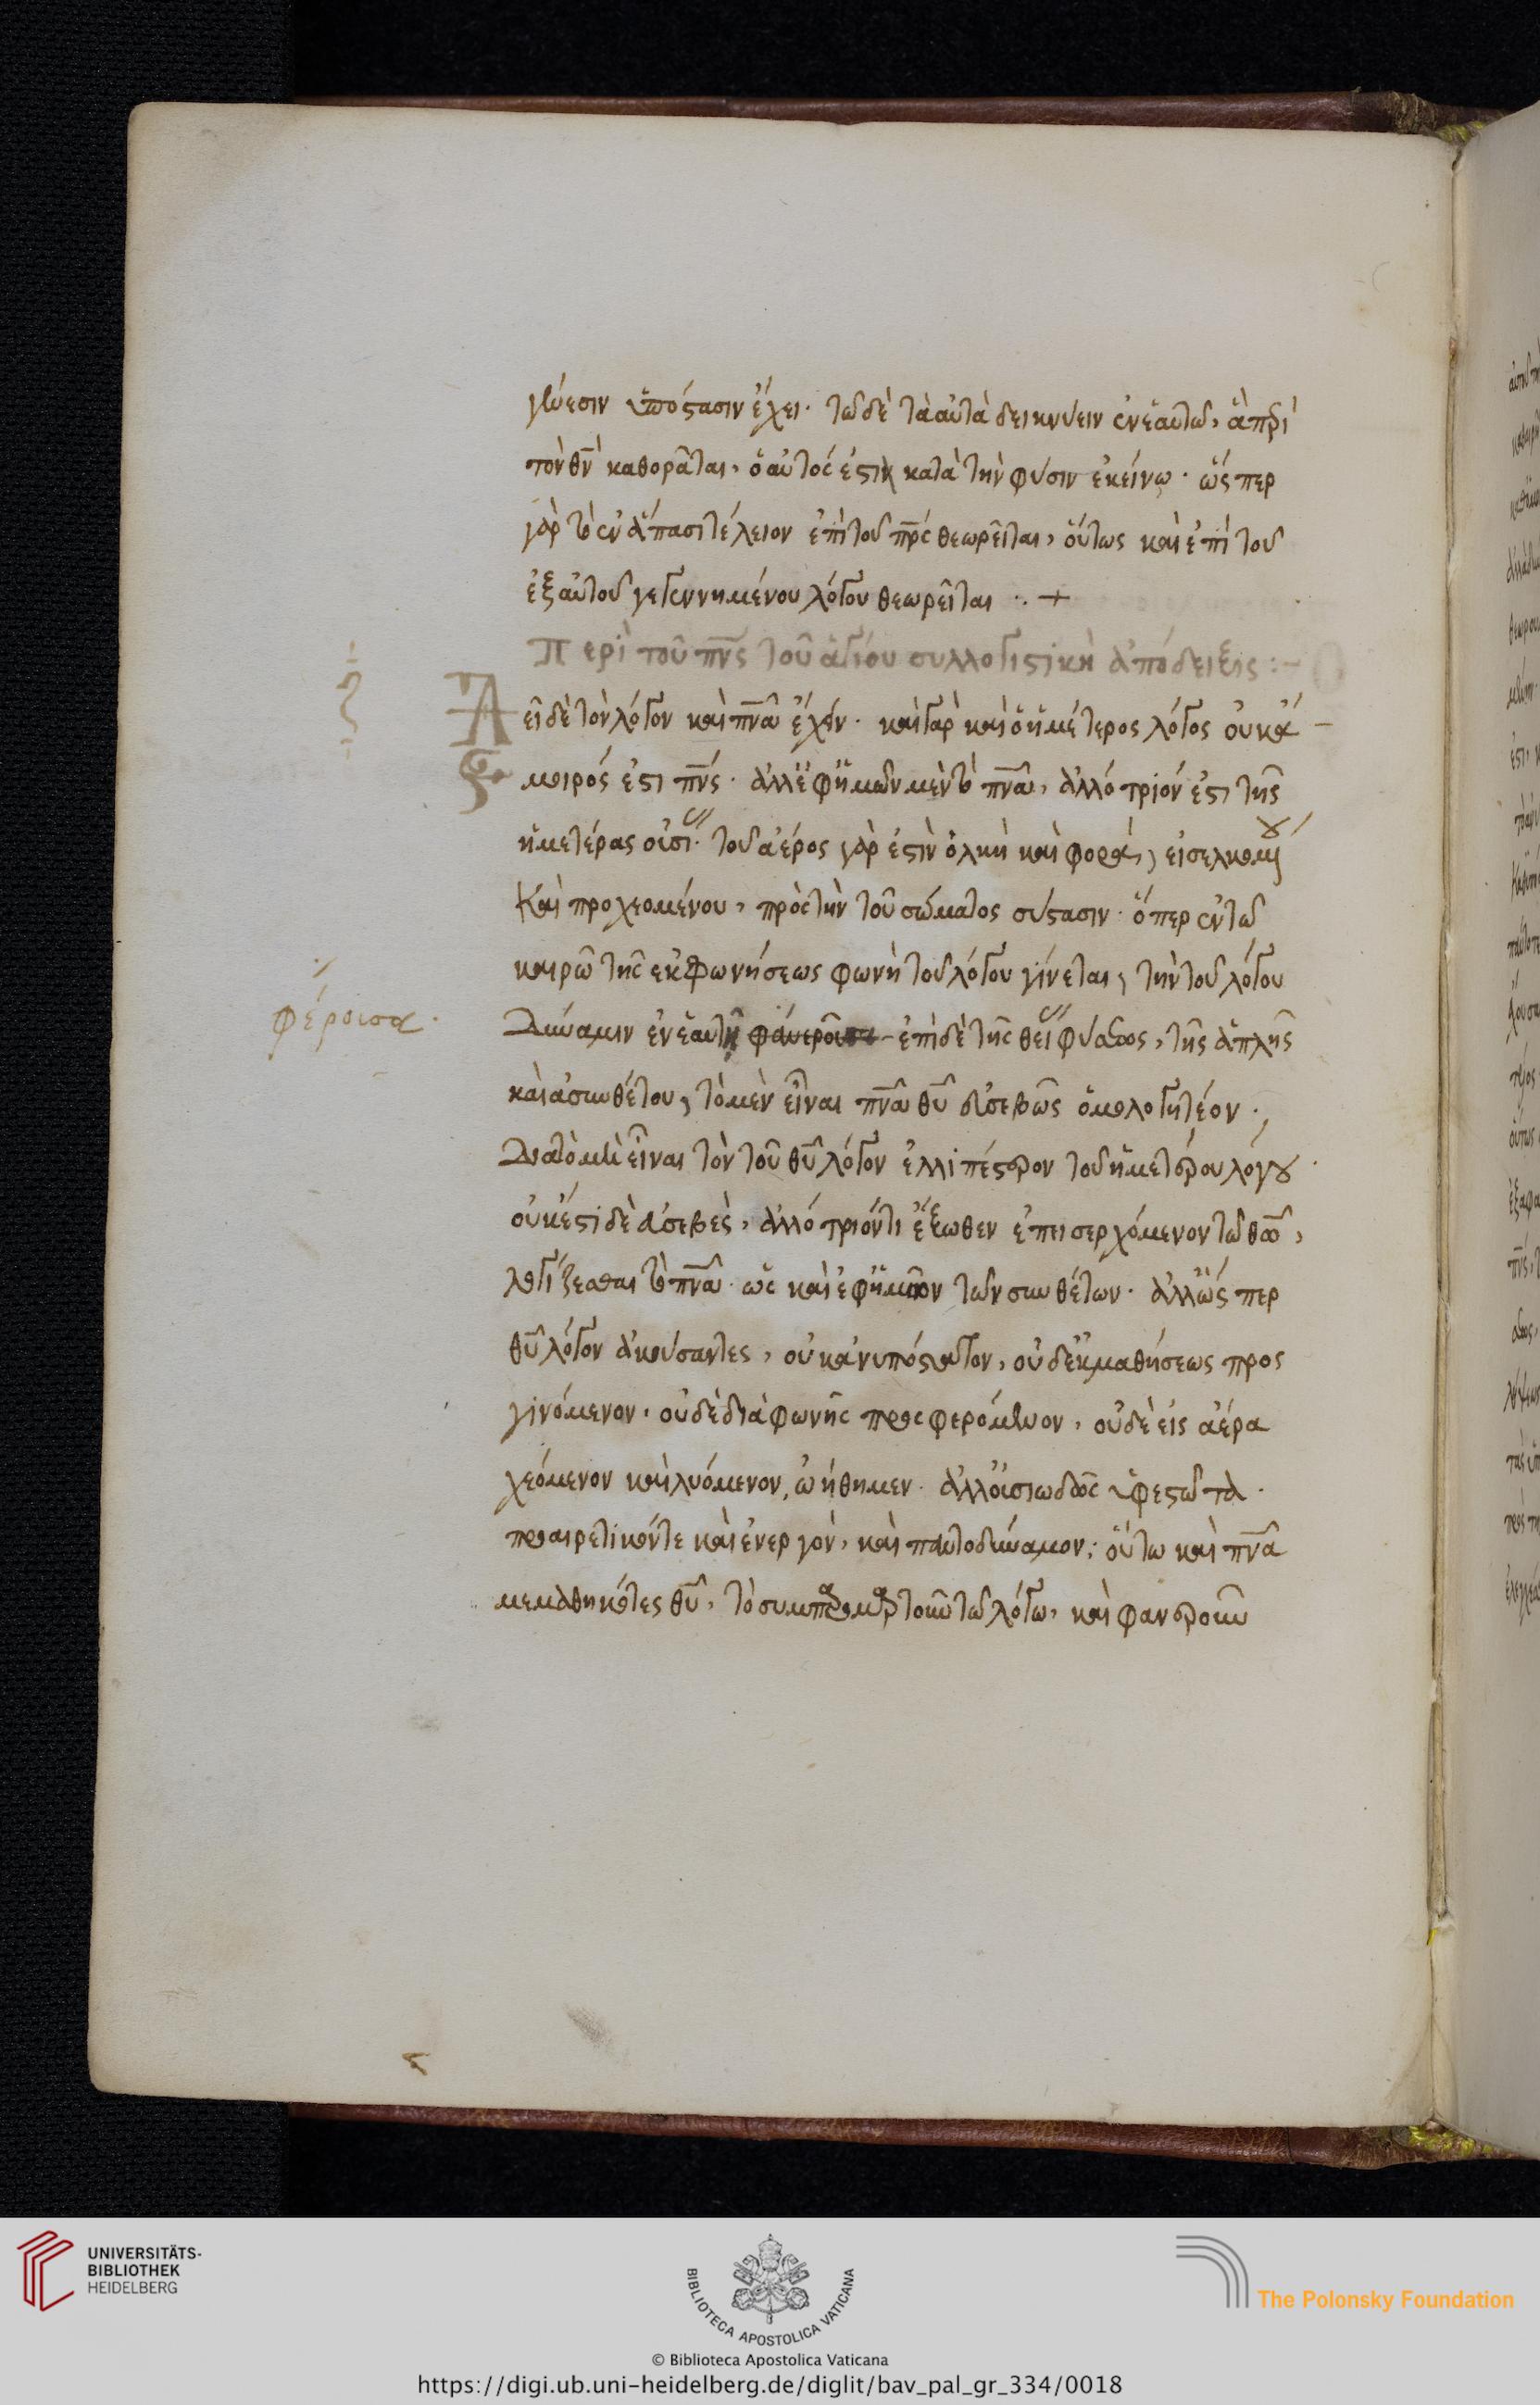 γέννησιν ὑπόστασιν ἔχει· τῶ δὲ τὰ αὐτὰ δεικνύειν ἐν ἑαυτῶ, ἃ περὶ
τὸν θν̅ καθορᾶται, ὁ αὐτός ἐστι κατὰ τὴν φύσιν ἐκείνω· ὥσπερ
γὰρ τὸ ἐν ἅπασι τέλειον ἐπὶ τοῦ πρ̅ς θεωρεῖται, οὕτως καὶ ἐπὶ τοῦ
ἐξ αὐτοῦ γεγεννημένου λόγου θεωρεῖται ·. +
Περὶ τοῦ πν̅ς τοῦ ἁγίου συλλογιστικὴ ἀπόδειξις :-
ζ
Δεῖ δὲ τὸν λόγον καὶ πν̅α ἔχειν· καὶ γὰρ καὶ ὁ ἡμέτερος λόγος οὐκ ἄ
μοιρός ἐστι πν̅ς· ἀλλ' ἐφ' ἡμῶν μὲν τὸ πν̅α, ἀλλότριόν ἐστι τῆς
ἡμετέρας οὐσί· τοῦ ἀέρος γὰρ ἐστὶν ὁλκὴ καὶ φορά, εἰσελκομ
Καὶ προχεομένου, πρὸς τὴν τοῦ σώματος σύστασιν· ὅπερ ἐν τῶ
καιρῶ τῆς ἐκφωνήσεως φωνὴ τοῦ λόγου γίνεται, τὴν τοῦ λόγου
φέρουσα·
Δύναμιν ἐν ἑαυτῆ φανεροῦσα ἐπὶ δὲ τῆς θεί φύσεως, τῆς ἁπλῆς
καὶ ἀσυνθέτου, τὸ μὲν εἶναι πν̅α θυ̅ εὐσεβῶς ὁμολογητέον·
Διὰ τὸ μὴ εἶναι τὸν τοῦ θυ̅ λόγον ἐλλιπέστερον τοῦ ἡμετέρου λόγου·
οὐκ ἔστι δὲ ἀσεβὲς, ἀλλότριόν τι ἔξωθεν ἐπεισερχόμενον τῶ θω̅,
λογίζεσθαι τὸ πν̅α· ὡς καὶ ἐφ' ἡμῶν τῶν συνθέτων· ἀλλ' ὥσπερ
θυ̅ λόγον ἀκούσαντες, οὐκ ἀνυπόστατον, οὐδ' ἐκ μαθήσεως προς
γινόμενον· οὐδὲ διὰ φωνῆς προσφερόμενον, οὐδὲ εἰς ἀέρα
χεόμενον καὶ λυόμενον, ὠήθημεν· ἀλλ' οὐσιωδῶς ὑφεστῶτα·
προαιρετικόν τε καὶ ἐνεργὸν, καὶ παντοδύναμον· οὕτω καὶ πν̅α
μεμαθηκότες θυ̅, τὸ συμπαρομαρτοῦν τῶ λόγω, καὶ φανεροῦν
UNIVERSITÄTS-
BIBLIOTHEK
HEIDELBERG
BIBLIOTECA APOSTOLICA VATICANA
The Polonsky Foundation
© Biblioteca Apostolica Vaticana
https://digi.ub.uni-heidelberg.de/diglit/bav_pal_gr_334/0018